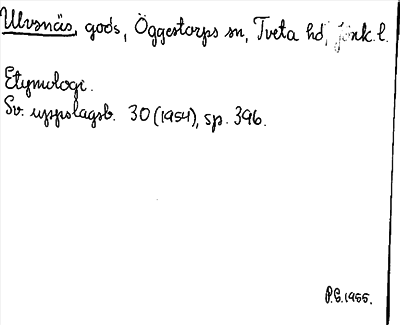 Ulvsnäs, gods, Öggestorps sn, Tveta hd, Jönk. l.
Etymologi.
Sv. uppslagsb. 30 (1954), sp. 396.
P.G. 1955.